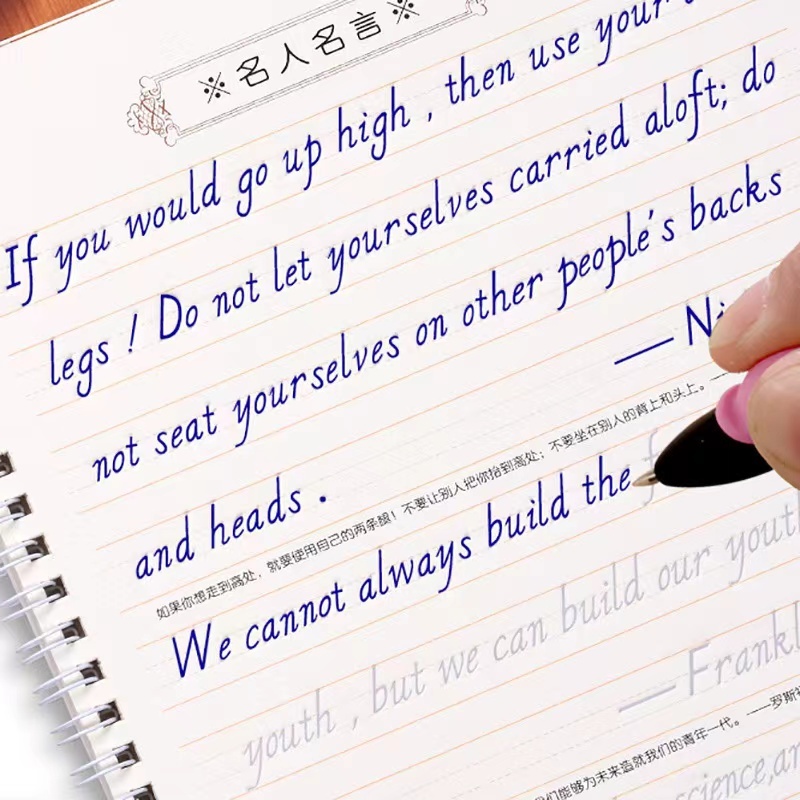 ※名人名言※
If you would go up high , then use your
legs ! Do not let yourselves carried aloft; do
not seat yourselves on other people's backs
— Ni
and heads .
如果你想走到高处，就要使用自己的两条腿！不要让别人把你抬到高处；不要坐在别人的背上和头上。—
We cannot always build the f
youth , but we can build our youth
— Frankl
我们能够为未来造就我们的青年一代。——罗斯
science, an